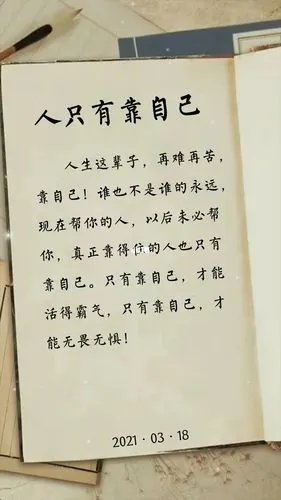 人只有靠自己
人生这辈子，再难再苦，
靠自己！谁也不是谁的永远，
现在帮你的人，以后未必帮
你，真正靠得住的人也只有
靠自己。只有靠自己，才能
活得霸气，只有靠自己，才
能无畏无惧！
2021·03·18